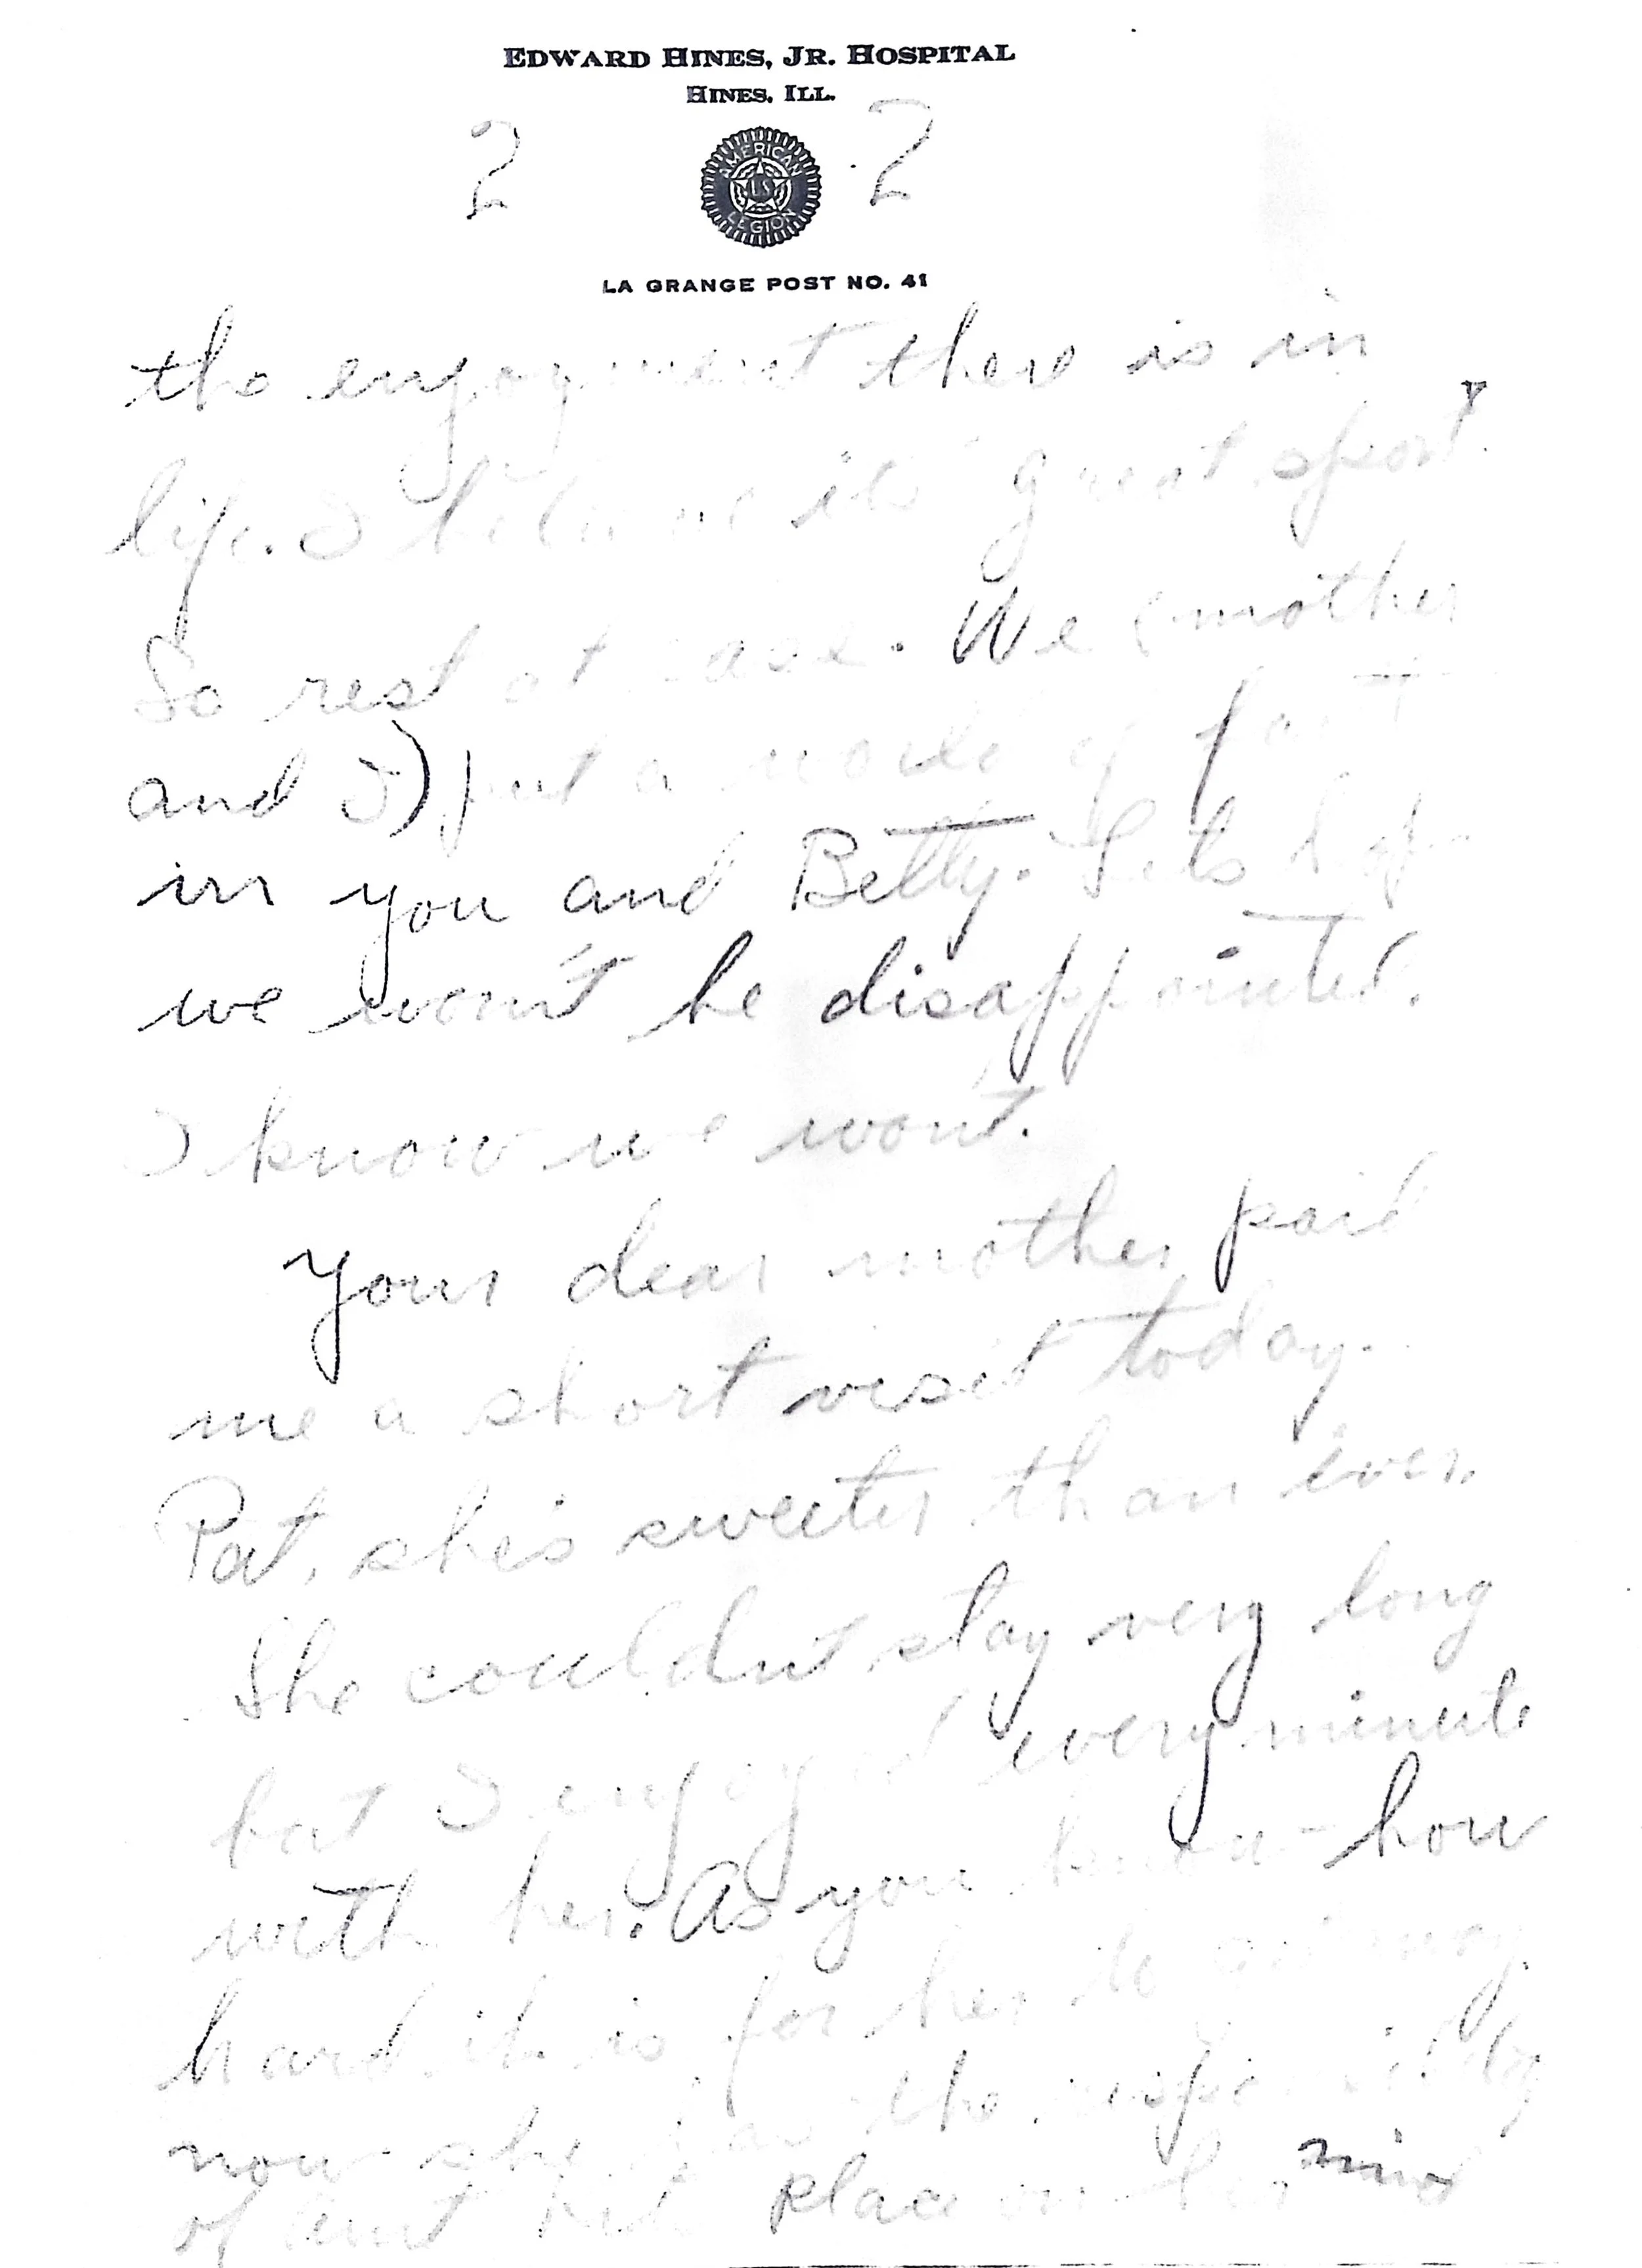 EDWARD HINES, JR. HOSPITAL
HINES, ILL.
2 2
AMERICAN
US
LEGION
LA GRANGE POST NO. 41
the enjoyment there is in
life. I believe its great sport.
So rest at ease. We (mother
and I) put a world of faith
in you and Betty. Lets hope
we won't be disappointed.
I know we won't.
Your dear mother paid
me a short visit today.
Pat, she's sweeter than ever.
She couldn't stay very long
but I enjoyed every minute
with her. As you know - how
hard it is for her to get away
now she has the responsibility
of place on her mind